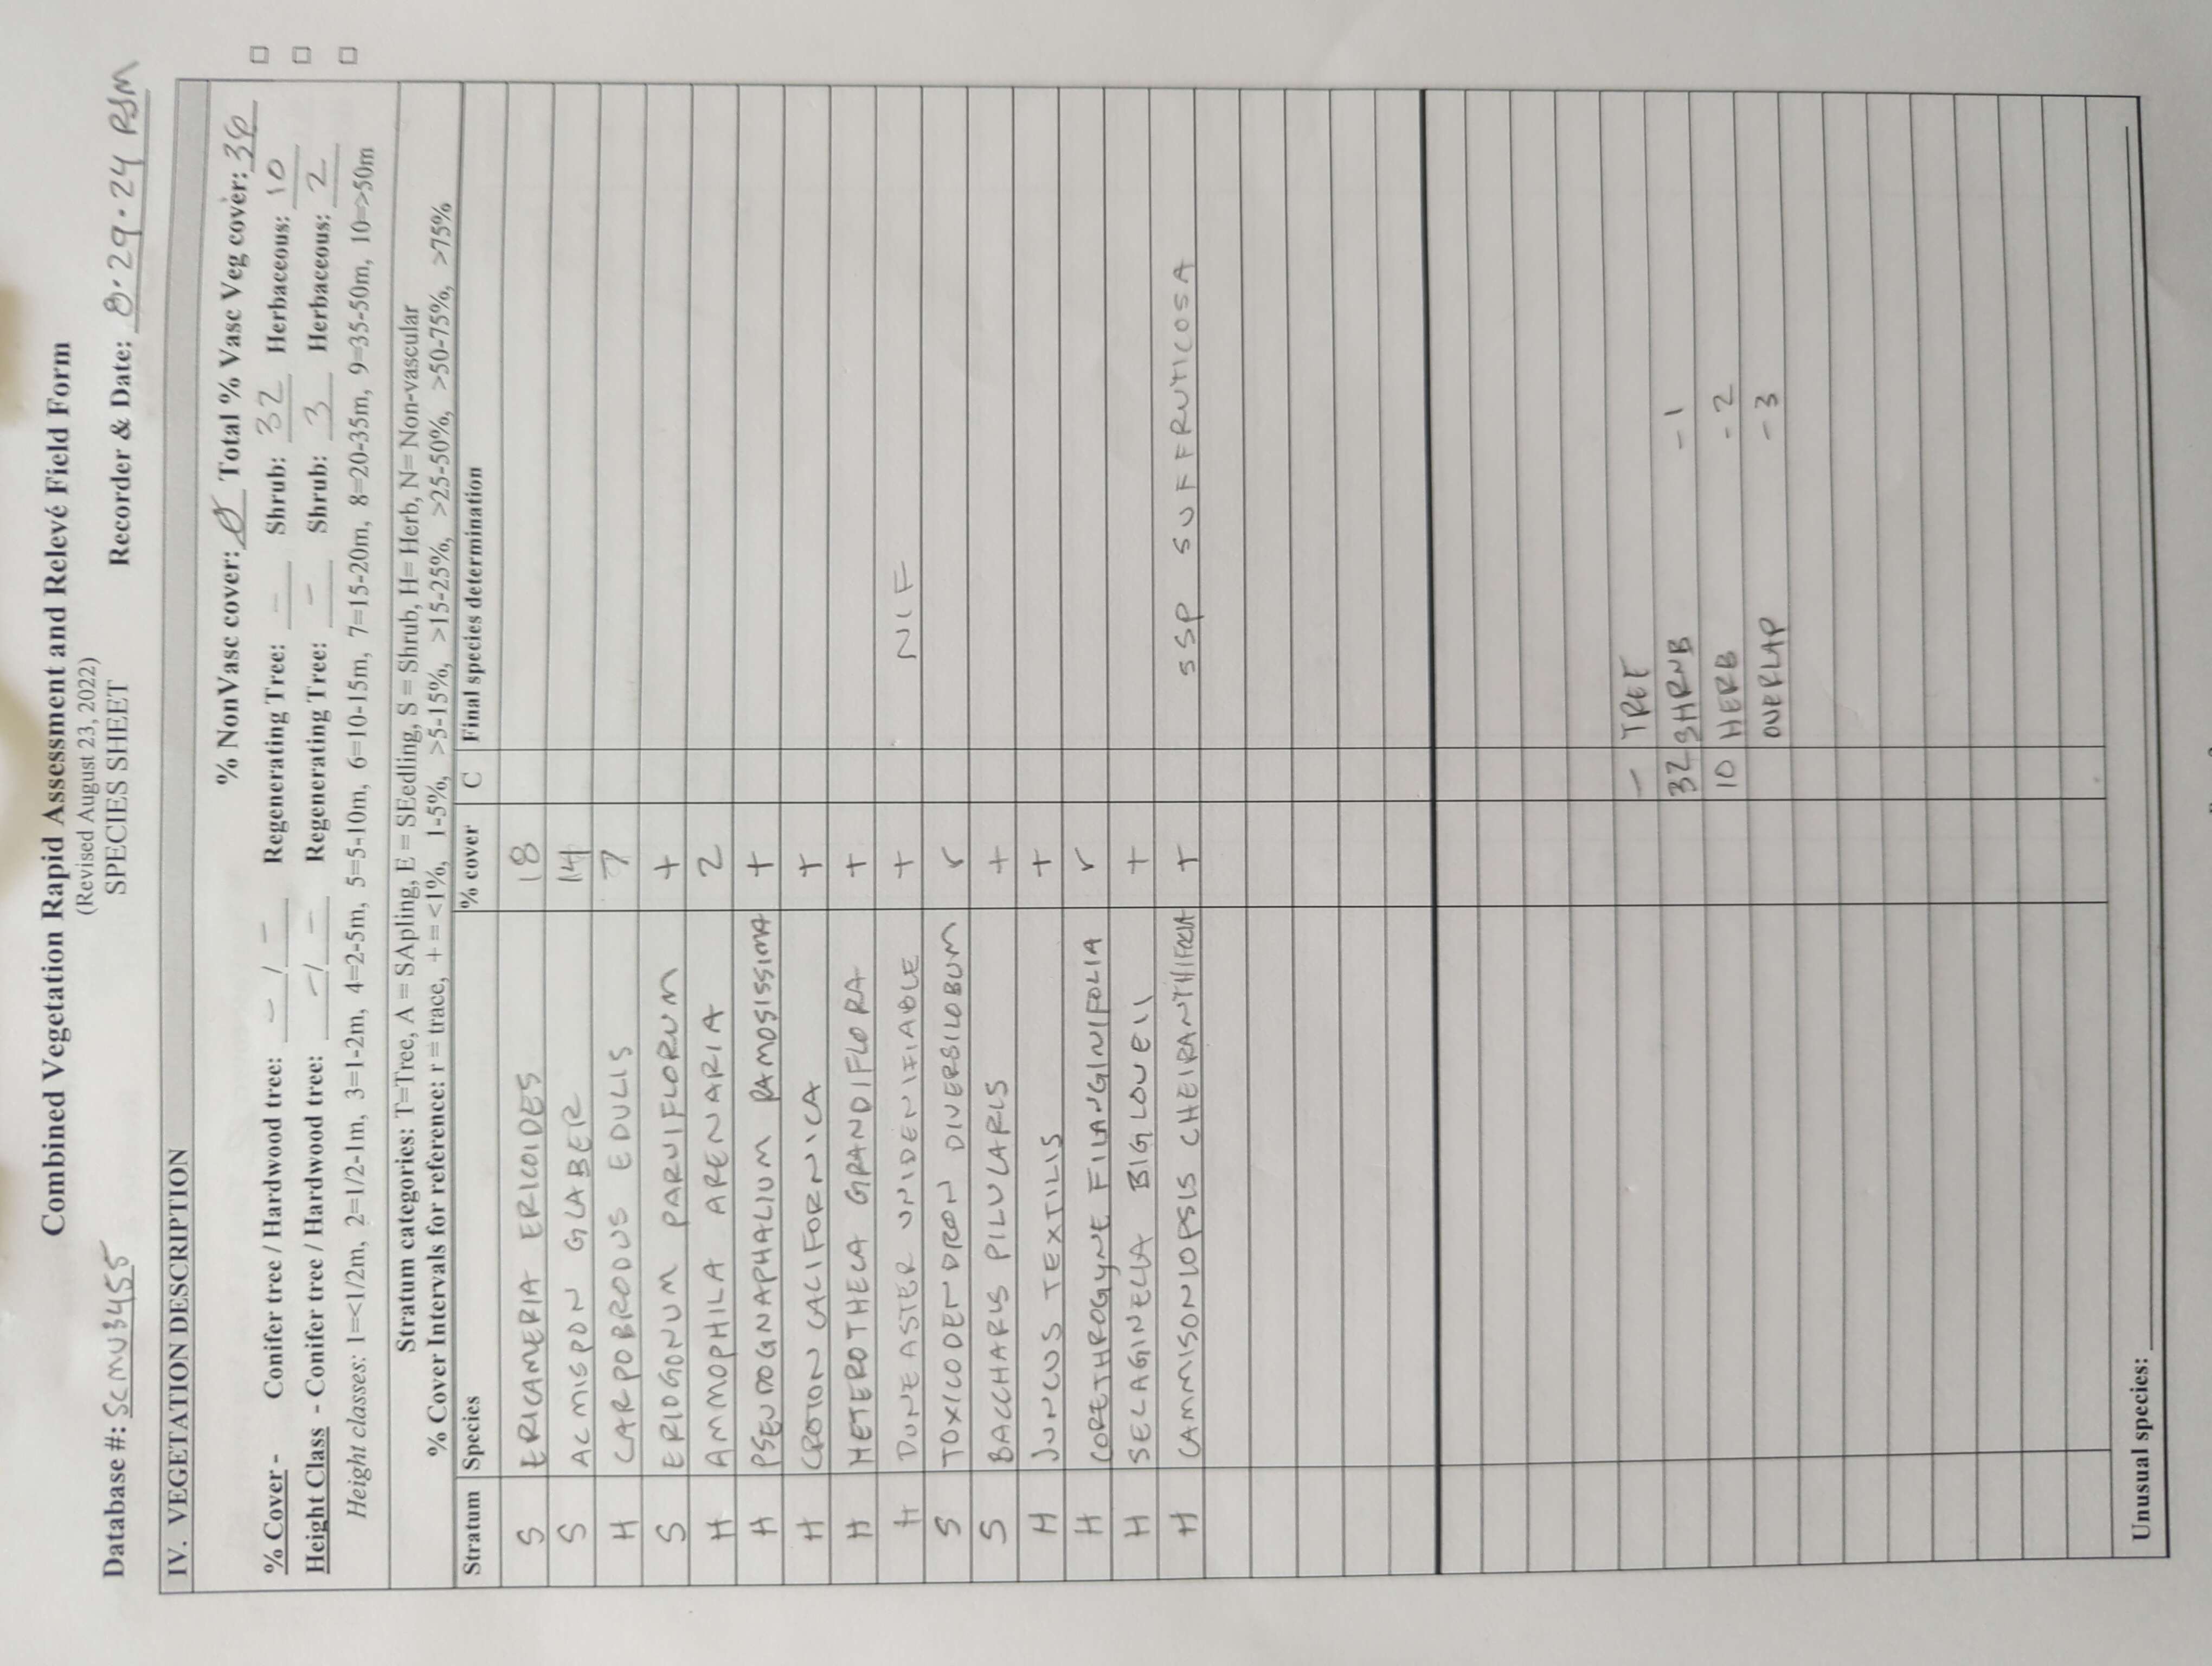 Combined Vegetation Rapid Assessment and Relevé Field Form
(Revised August 23, 2022)
SPECIES SHEET
Database #: SCMU3455 Recorder & Date: 8·29·24 RSM
IV. VEGETATION DESCRIPTION
% NonVasc cover: Ø Total % Vasc Veg cover: 36
% Cover - Conifer tree / Hardwood tree: - / - Regenerating Tree: - Shrub: 32 Herbaceous: 10
Height Class - Conifer tree / Hardwood tree: - / - Regenerating Tree: - Shrub: 3 Herbaceous: 2
Height classes: 1=<1/2m, 2=1/2-1m, 3=1-2m, 4=2-5m, 5=5-10m, 6=10-15m, 7=15-20m, 8=20-35m, 9=35-50m, 10=>50m
Stratum categories: T=Tree, A = SApling, E = SEedling, S = Shrub, H= Herb, N= Non-vascular
% Cover Intervals for reference: r = trace, + = <1%, 1-5%, >5-15%, >15-25%, >25-50%, >50-75%, >75%
Stratum Species % cover C Final species determination
S ERICAMERIA ERICOIDES 18
S ACMISPON GLABER 14
H CARPOBRODUS EDULIS 7
S ERIOGONUM PARVIFLORUM +
H AMMOPHILA ARENARIA 2
H PSEUDOGNAPHALIUM RAMOSISSIMA +
H CROTON CALIFORNICA +
H HETEROTHECA GRANDIFLORA +
H DUNE ASTER UNIDENIFIABLE + NIF
S TOXICODENDRON DIVERSILOBUM r
S BACCHARIS PILULARIS +
H JUNCUS TEXTILIS +
H CORETHROGYNE FILANGINIFOLIA r
H SELAGINELLA BIGLOVEII +
H CAMMISONIOPSIS CHEIRANTHIFOLIA + SSP SUFFRUTICOSA
- TREE
32 SHRUB -1
10 HERB -2
OVERLAP -3
Unusual species: